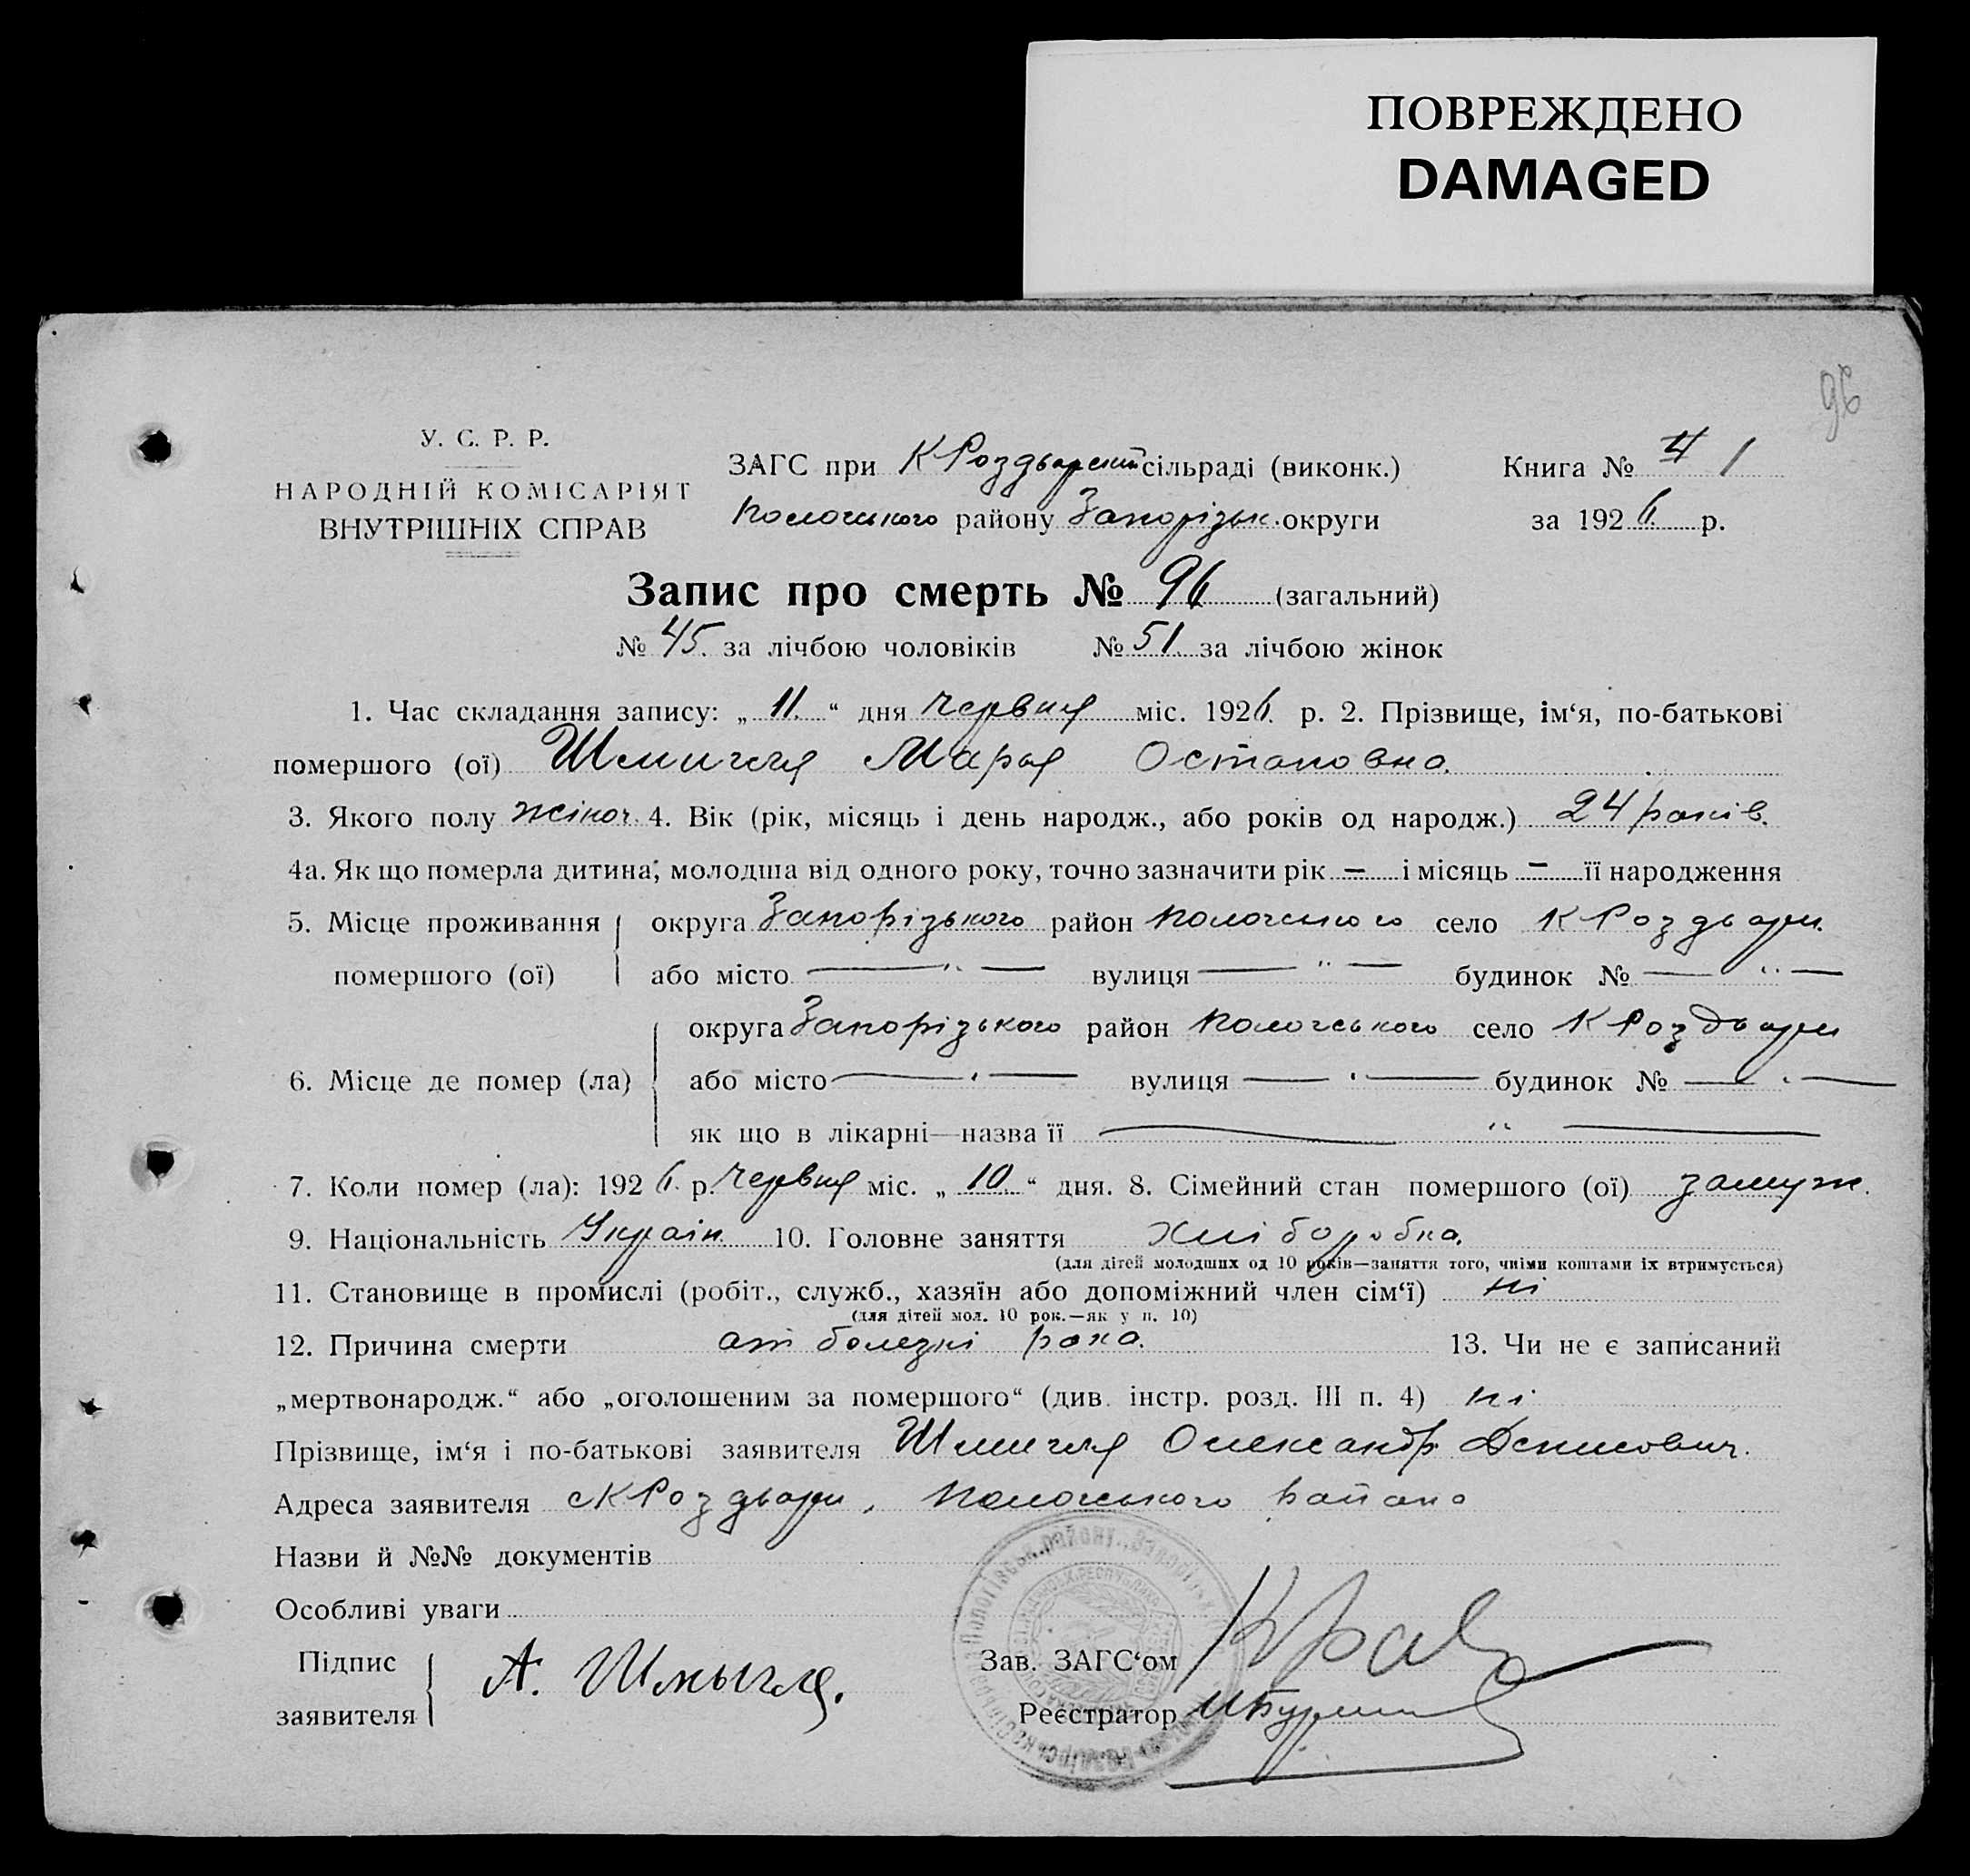 ПОВРЕЖДЕНО
DAMAGED
96
У. С. Р. Р.
НАРОДНІЙ КОМІСАРІЯТ
ВНУТРІШНІХ СПРАВ
ЗАГС при К Роздьарськ сільраді (виконк.)
Пологського району Запорізьк. округи
Книга № 4 1
за 1926 р.
Запис про смерть № 96 (загальний)
№ 45. за лічбою чоловіків № 51. за лічбою жінок
1. Час складання запису: „ 11. “ дня червня міс. 1926. р. 2. Прізвище, ім‘я, по-батькові
помершого (ої) Шмигля Марья Остаповна.
3. Якого полу жіноч. 4. Вік (рік, місяць і день народж., або років од народж.) 24 років.
4а. Як що померла дитина, молодша від одного року, точно зазначити рік — і місяць — її народження
5. Місце проживання помершого (ої) округа Запорізького район Пологського село К Роздьори.
або місто — " — вулиця — " — будинок № — " —
6. Місце де помер (ла) округа Запорізького район Пологського село К Роздьори
або місто — " — вулиця — " — будинок № — " —
як що в лікарні—назва її — " —
7. Коли помер (ла): 1926. р. червня міс. „ 10. “ дня. 8. Сімейний стан помершого (ої) замуж.
9. Національність Україн. 10. Головне заняття хліборобка.
(для дітей молодших од 10 років—заняття того, чиїми коштами їх втримується)
11. Становище в промислі (робіт., служб., хазяїн або допоміжний член сім‘ї) ні
(для дітей мол. 10 рок.—як у п. 10)
12. Причина смерти от болезні рака. 13. Чи не є записаний
„мертвонародж.“ або „оголошеним за помершого“ (див. інстр. розд. III п. 4) ні
Прізвище, ім‘я і по-батькові заявителя Шмигля Олександр Денисович.
Адреса заявителя с К Роздьори, Пологського району
Назви й №№ документів
Особливі уваги
Підпис заявителя А. Шмыгля.
Зав. ЗАГС‘ом
Реєстратор